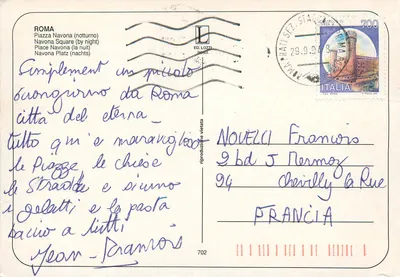 ROMA
Piazza Navona (notturno)
Navona Square (by night)
Place Navona (la nuit)
Navona Platz (nachts)
ED. LOZZI
700
ITALIA
Simplement un piccolo
buongiorno da Roma
città del eterna
tutto qui e maraviglioso
le Piazze, le chiese
le Strade e sicuno
i gelatti e la pasta
bacio a tutti
Jean-Francois
riproduzione vietata
NOVELLI Francois
9 bd J Mermoz
94 Chevilly la Rue
FRANCIA
702